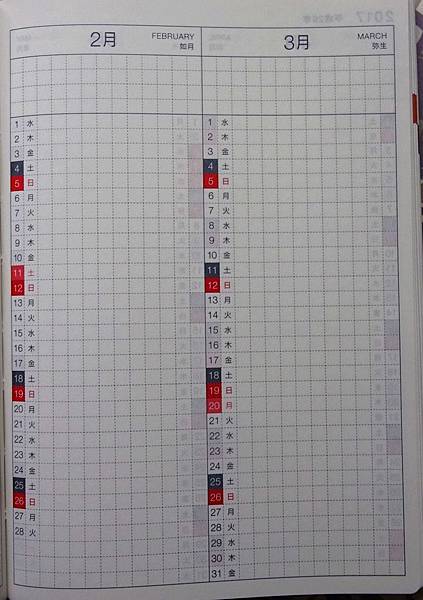 2月
FEBRUARY
如月
1 水
2 木
3 金
4 土
5 日
6 月
7 火
8 水
9 木
10 金
11 土
12 日
13 月
14 火
15 水
16 木
17 金
18 土
19 日
20 月
21 火
22 水
23 木
24 金
25 土
26 日
27 月
28 火
3月
MARCH
弥生
1 水
2 木
3 金
4 土
5 日
6 月
7 火
8 水
9 木
10 金
11 土
12 日
13 月
14 火
15 水
16 木
17 金
18 土
19 日
20 月
21 火
22 水
23 木
24 金
25 土
26 日
27 月
28 火
29 水
30 木
31 金